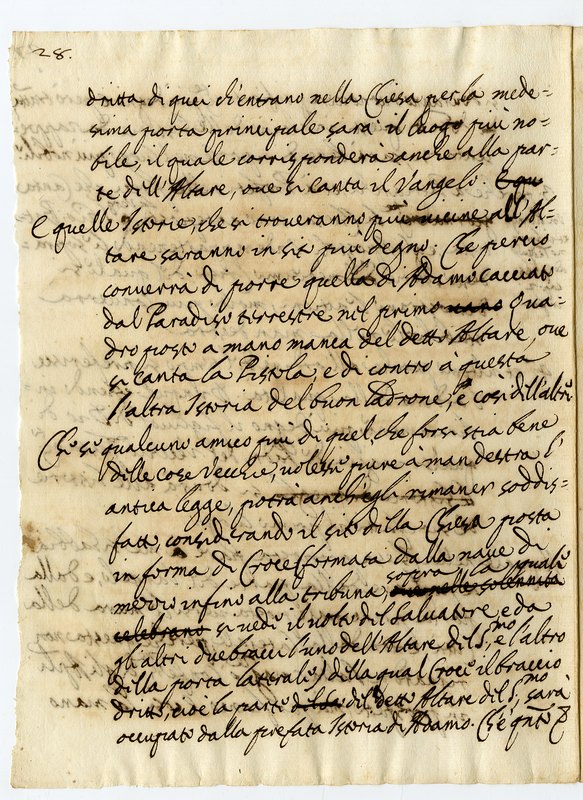 28.
dritta di quei ch'entrano nella Chiesa per la mede=
sima porta principale sarà il luogo più no=
bile, il quale corrisponderà anche alla par=
te dell'Altare, ove si canta il Vangelo. Equ
E quelle Istorie, che si troveranno più vicine all'Al=
tare saranno in sito più degno: Che perciò
converrà di porre quella di Adamo cacciato
dal Paradiso terrestre nel primo vano Qua=
dro posto à mano manca del detto Altare, ove
si canta la Pistola, e di contro à questa
l'altra Istoria del buon Ladrone, e così dell'altre.
Che se qualcuno amico più di quel, che forse stia bene
delle cose vecchie, volesse pure à man destra l'
antica legge, potrà anch'egli rimaner soddis=
fatto considerando il sito della Chiesa posta
in forma di Croce (formata dalla nave di
mezzo infino alla tribuna, sopra la quale
ove nelle solennità
celebrano si vede il volto del Salvatore, e da
gli altri due bracci l'uno dell'Altare del S.mo, e l'altro
della porta laterale) della qual Croce il braccio
dritto, cioè la parte del detto Altare del S.mo, sarà
occupato dalla prefata Istoria di Adamo. Che